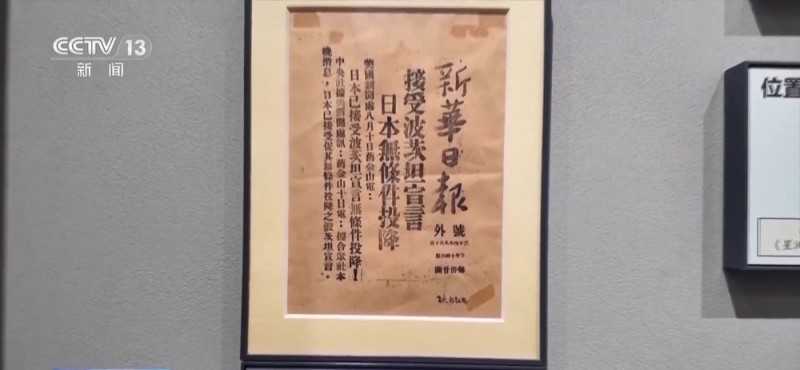 CCTV 13
新闻
新華日報
號外
每份廿圓
接受波茨坦宣言
日本無條件投降
美國新聞處八月十日舊金山電：
日本已接受波茨坦宣言無條件投降！
中央社據美新聞處訊：舊金山十日電：據合眾社本
晚消息，日本已接受促其無條件投降之波茨坦宣言。
位置